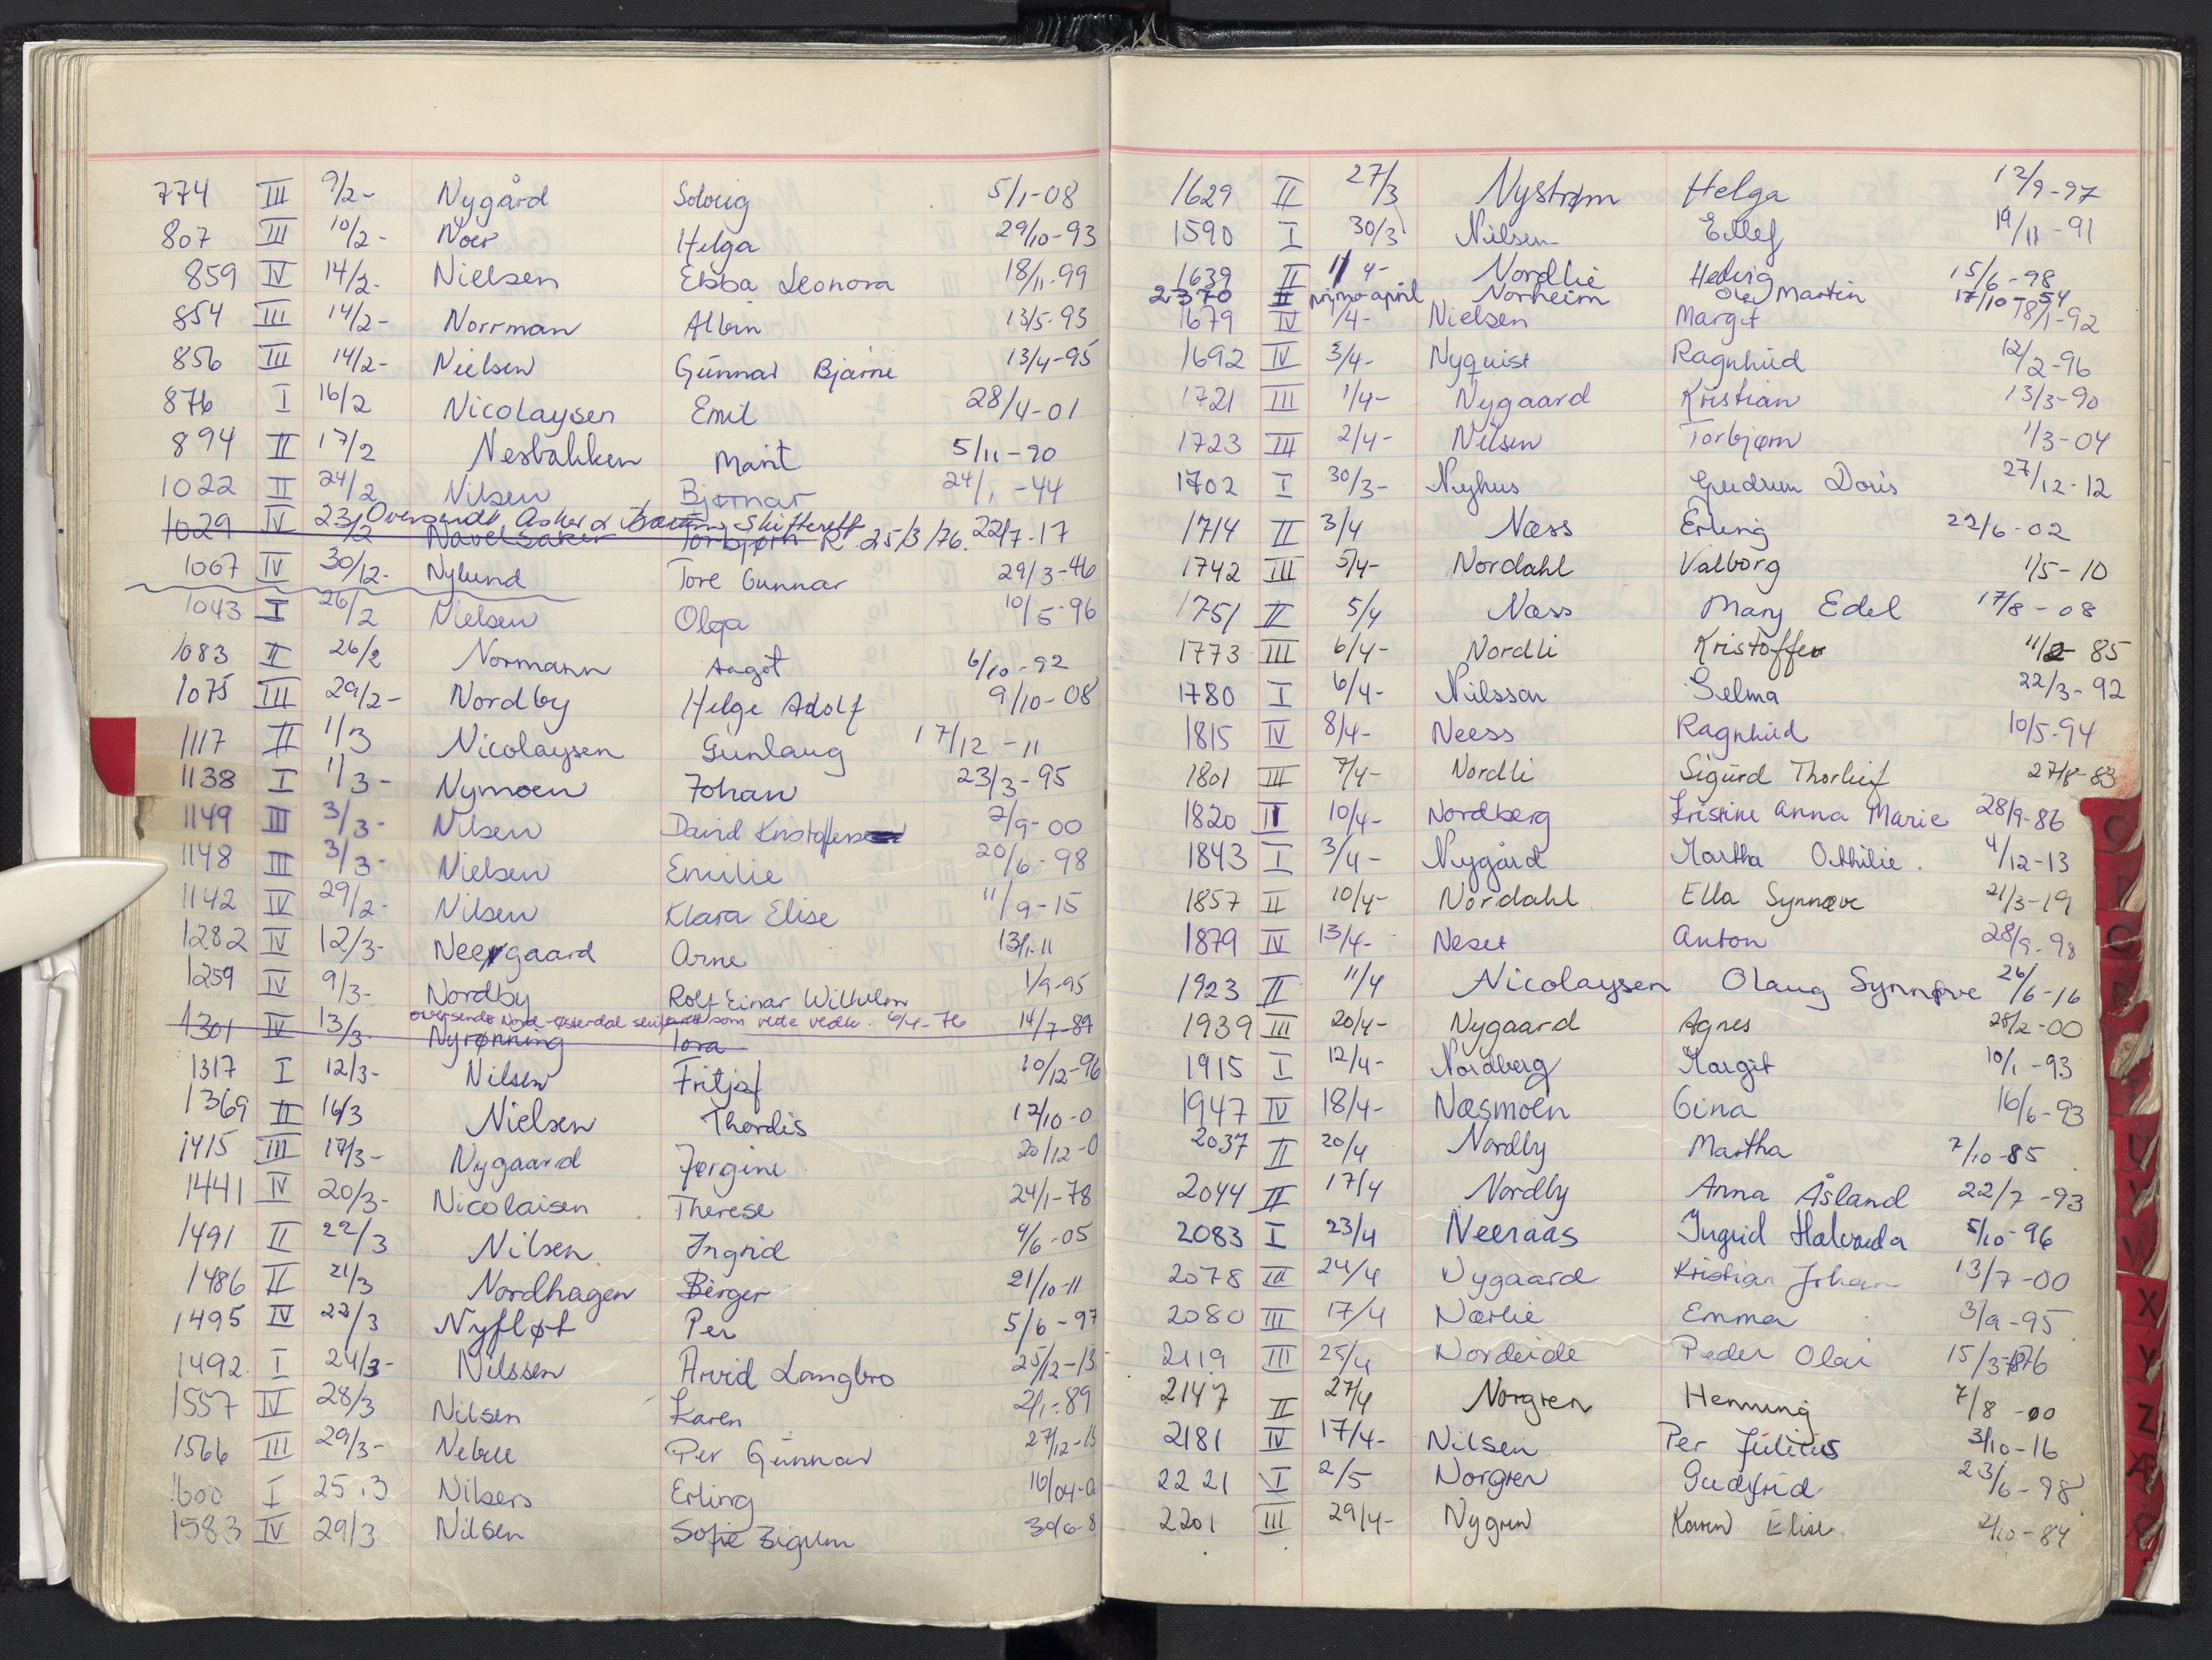 774 III 9/2- Nygård Solveig 5/1-08
807 III 10/2- Noer Helga 29/10-93
859 IV 14/2- Nielsen Ebba Leonora 18/11-99
854 III 14/2- Norrman Albin 13/5-93
856 III 14/2- Nielsen Gunnar Bjarne 13/4-95
876 I 16/2 Nicolaysen Emil 28/4-01
894 II 17/2 Nesbakken Marit 5/11-90
1022 II 24/2 Nilsen Bjørnar 24/1-44
Oversendt Asker & Bærum Skifterett
1029 IV 23/2 Torbjørn R. 25/3/76. 22/7-17
1067 IV 30/12- Nylund Tore Gunnar 29/3-46
1043 I 26/2 Nielsen Olga 10/5-96
1083 II 26/2 Normann Aagot 6/10-92
1075 III 29/2- Nordby Helge Adolf 9/10-08
1117 II 1/3 Nicolaysen Gunlaug 17/12-11
1138 I 1/3- Nymoen Johan 23/3-95
1149 III 3/3- Nilsen David 2/9-00
1148 III 3/3- Nielsen Emilie 20/6-98
1142 IV 29/2- Nilsen Klara Elise 11/9-15
1282 IV 12/3- Neergaard Arne 13/1-11
1259 IV 9/3- Nordby Rolf Einar Wilhelm 1/9-95
oversendt Nord-Østerdal som rette vedk. 6/4-76
1301 IV 13/3- Nyrønning Tora 14/7-89
1317 I 12/3- Nilsen Fritjof 10/12-96
1369 II 16/3 Nielsen Thordis 12/10-0
1415 III 17/3- Nygaard Jørgine 20/12-0
1441 IV 20/3- Nicolaisen Therese 24/1-78
1491 II 22/3 Nilsen Ingrid 4/6-05
1486 II 21/3 Nordhagen Birger 21/10-11
1495 IV 22/3 Nyfløt Per 5/6-97
1492 I 24/3- Nilssen Arvid Langbro 25/12-13
1557 IV 28/3 Nilsen Karen 2/1-89
1566 III 29/3- Per Gunnar 27/12-
1600 I 25.3 Nilsen Erling
1583 IV 29/3 Nilsen Sofie 30/6-8
1629 II 27/3 Nystrøm Helga 12/9-97
1590 I 30/3 Nilsen Ellef 19/11-91
1639 II 1/4- Nordlie Hedvig 15/6-98
2370 II primo april Norheim Ole Martin 17/10-54
1679 IV 1/4- Nielsen Margit 18/1-92
1692 IV 3/4- Nyquist Ragnhild 12/2-96
1721 III 1/4- Nygaard Kristian 13/3-90
1723 III 2/4- Nilsen Torbjørn 1/3-04
1702 I 30/3- Nyhus Gudrun Doris 27/12-12
1714 II 3/4 Næss Erling 22/6-02
1742 III 5/4- Nordahl Valborg 1/5-10
1751 II 5/4 Næss Mary Edel 17/8-08
1773 III 6/4- Nordli Kristoffer 11/2-85
1780 I 6/4- Nilsson Selma 22/3-92
1815 IV 8/4- Neess Ragnhild 10/5-94
1801 III 7/4- Nordli Sigurd Thorleif 27/8-83
1820 II 10/4- Nordberg Kristine Anna Marie 28/9-86
1843 I 3/4- Nygård Martha Othilie. 4/12-13
1857 II 10/4- Nordahl Ella Synnøve 21/3-19
1879 IV 13/4- Neset Anton 28/9-98
1923 II 11/4 Nicolaysen Olaug Synnøve 26/6-16
1939 III 20/4- Nygaard Agnes 28/2-00
1915 I 12/4- Nordberg Margit 10/1-93
1947 IV 18/4- Næsmoen Gina 16/6-93
2037 II 20/4 Nordby Martha 7/10-85
2044 II 17/4 Nordby Anna Åsland 22/7-93
2083 I 23/4 Neeraas Ingrid Halvarda 5/10-96
2078 III 24/4 Nygaard Kristian Johan 13/7-00
2080 III 17/4 Nærlie Emma 3/9-95
2119 III 25/4 Nordeide Peder Olai 15/3-1876
2147 II 27/4 Norgren Henning 7/8-00
2181 IV 17/4- Nilsen Per Julius 3/10-16
2221 I 2/5 Norgren Gudfrid 23/6-98
2201 III 29/4- Nygren Karen Elise 2/10-84
X
Y
Z
Æ